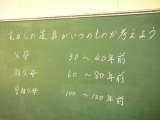 むかしの道具がいつのものか考えよう
父母 30～40年前
祖父母 60～80年前
曽祖父母 100～120年前